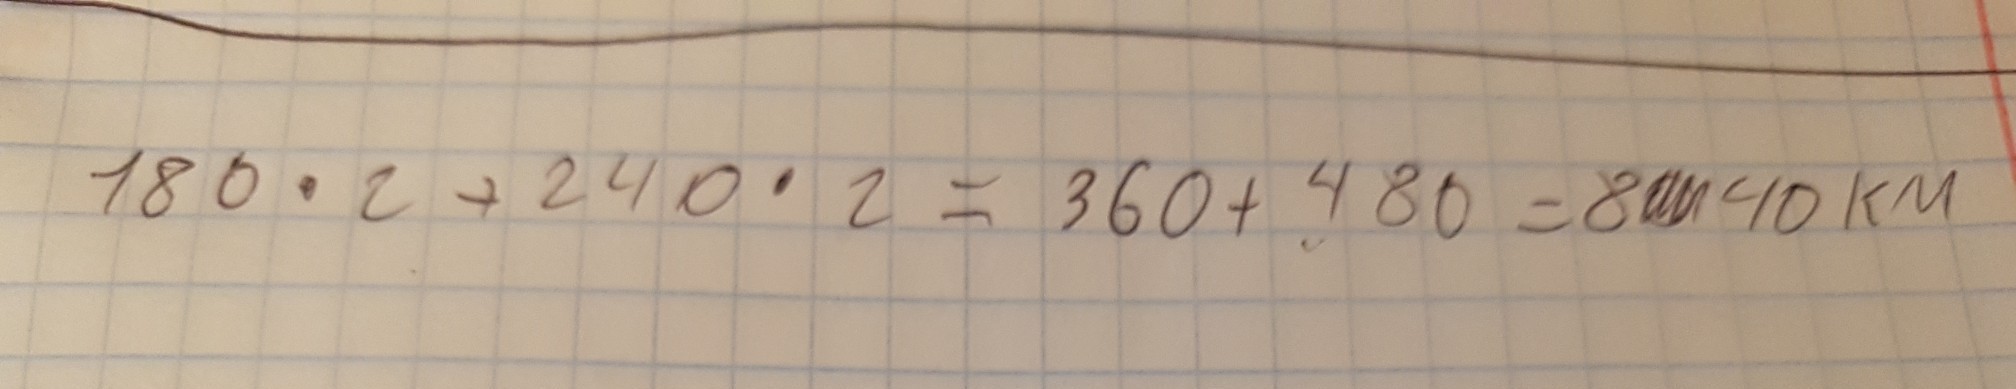 180 · 2 + 240 · 2 = 360 + 480 = 840 км